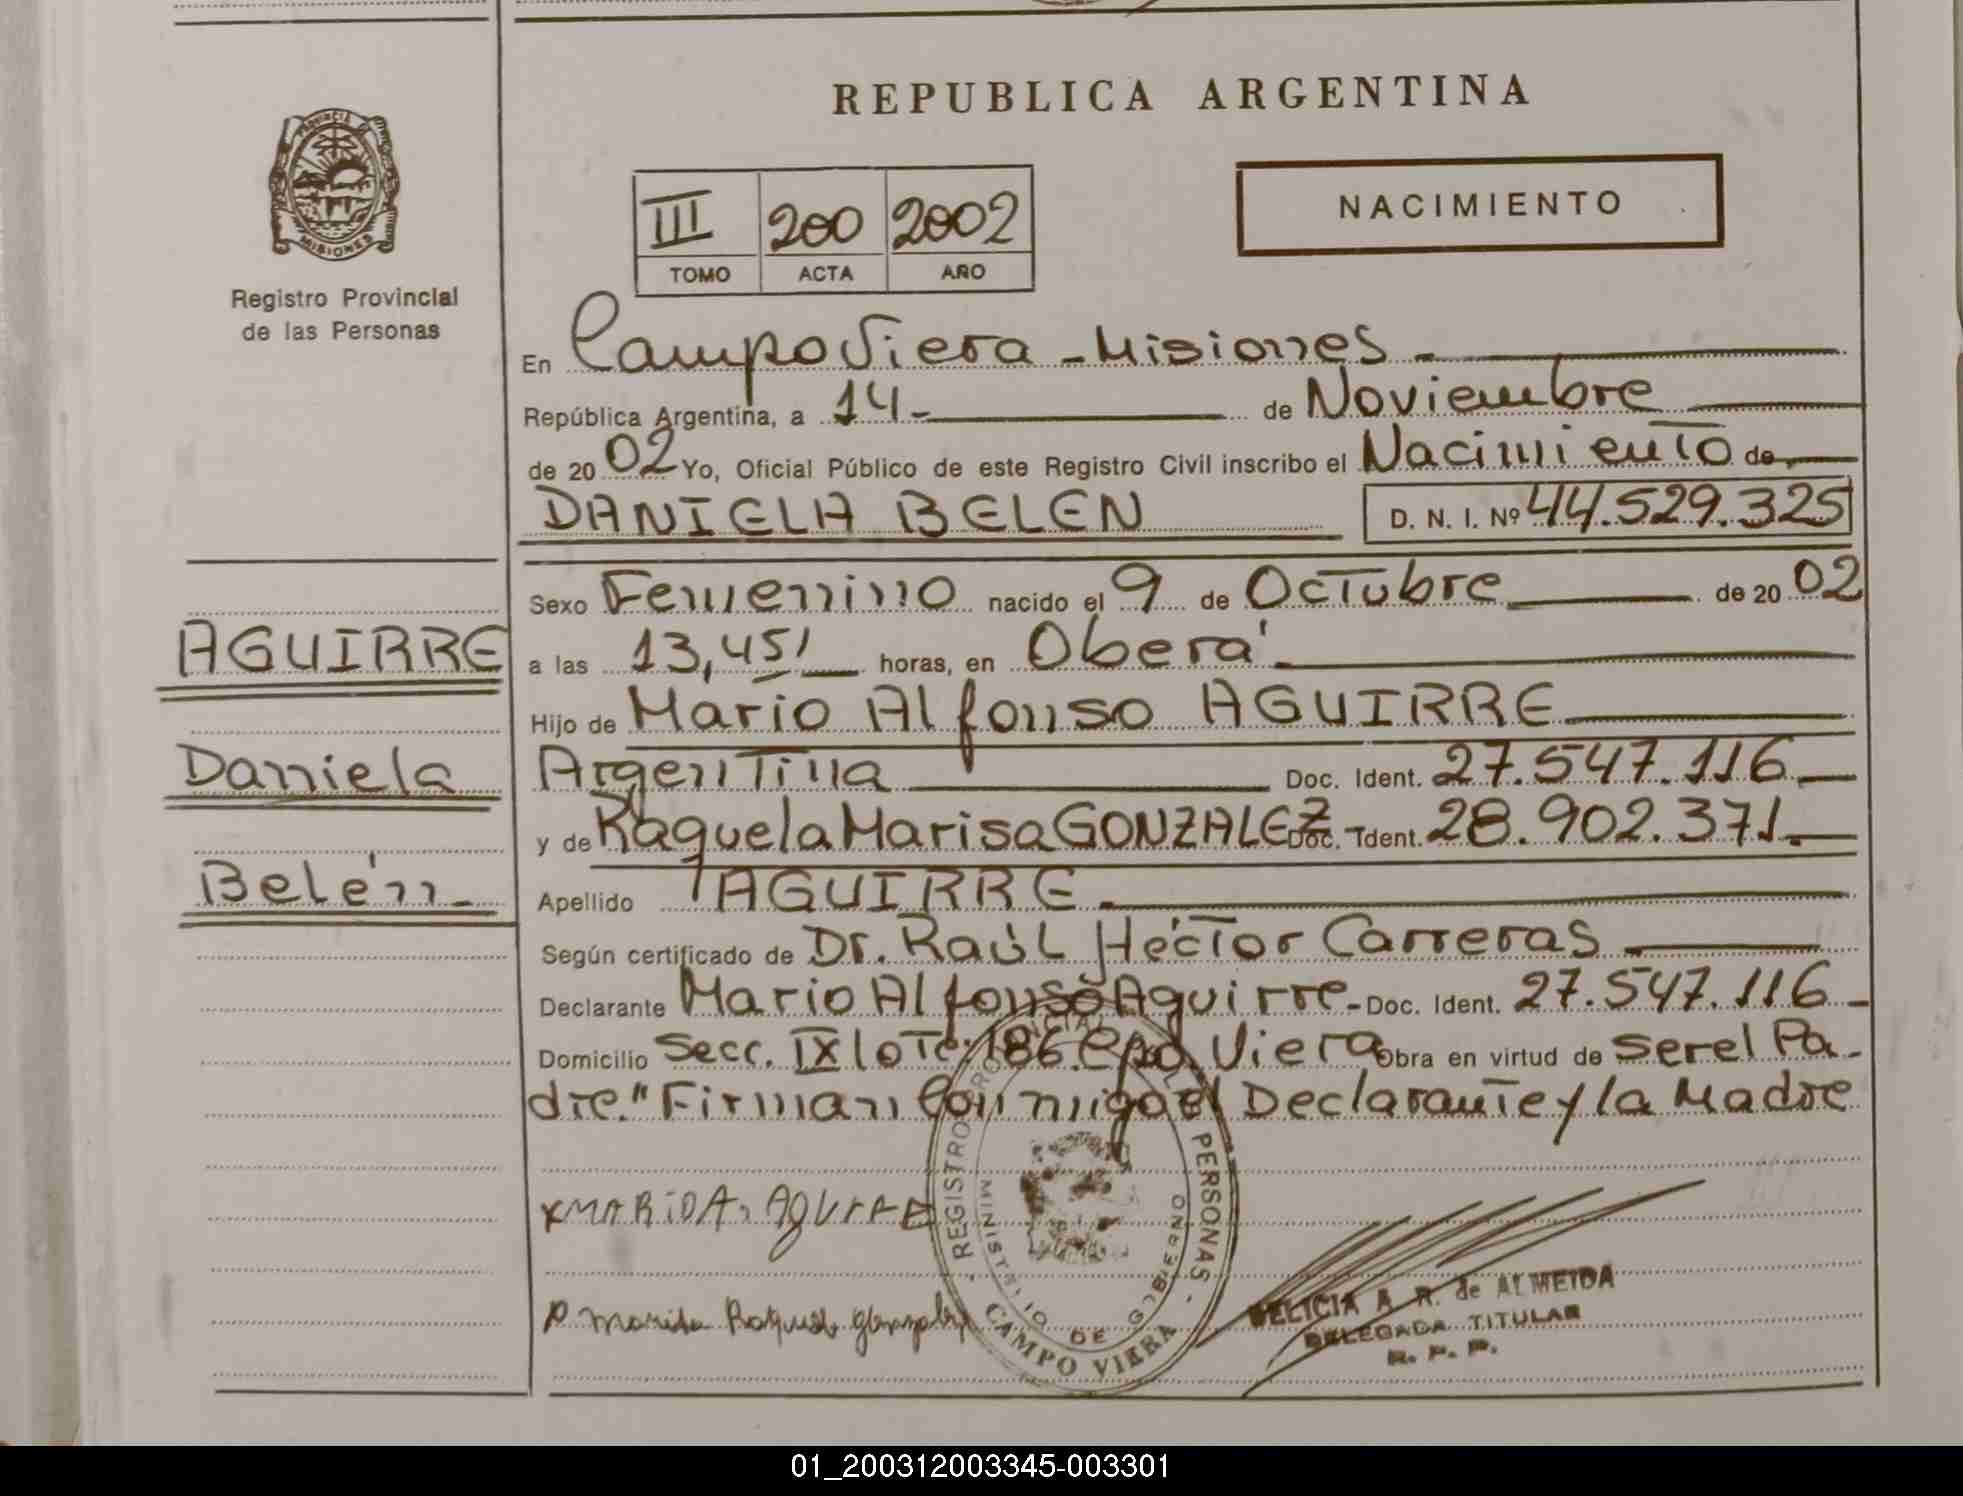 REPUBLICA ARGENTINA
PROVINCIA DE
MISIONES
Registro Provincial
de las Personas
III 200 2002
TOMO ACTA AÑO
NACIMIENTO
En Campo Viera - Misiones -
República Argentina, a 14 - de Noviembre
de 20 02 Yo, Oficial Público de este Registro Civil inscribo el Nacimiento de
DANIELA BELEN D. N. I. Nº 44.529.325
Sexo Femenino nacido el 9 de Octubre de 20 02
AGUIRRE
a las 13,45' horas, en Oberá
Hijo de Mario Alfonso AGUIRRE
Daniela
Argentina Doc. Ident. 27.547.116
y de Raquela Marisa GONZALEZ Doc. Ident. 28.902.371.
Belén -
Apellido AGUIRRE
Según certificado de Dr. Raúl Héctor Carreras
Declarante Mario Alfonso Aguirre - Doc. Ident. 27.547.116 -
Domicilio Secc. IX lote 186. Cpo Viera Obra en virtud de ser el Pa-
dre." Firman Conmigo el Declarante y la Madre
REGISTRO PROVINCIAL DE LAS PERSONAS
MINISTERIO DE GOBIERNO
CAMPO VIERA
DELICIA A. R. de ALMEIDA
DELEGADA TITULAR
R. P. P.
01_200312003345-003301